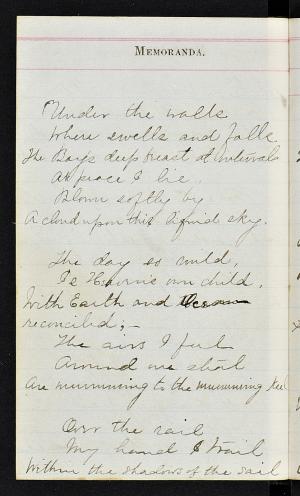 MEMORANDA.
Under the walls
Where swells and falls
The Bays deep breast at intervals
At peace I lie
Blown softly by
A cloud upon this liquid sky.
The day so mild,
Is Heavens own child,
With Earth and Ocean
reconciled; –
The airs I feel
Around me steal
Are murmuring to the murmuring keel
Over the rail
My hand I trail
Within the shadows of the sail